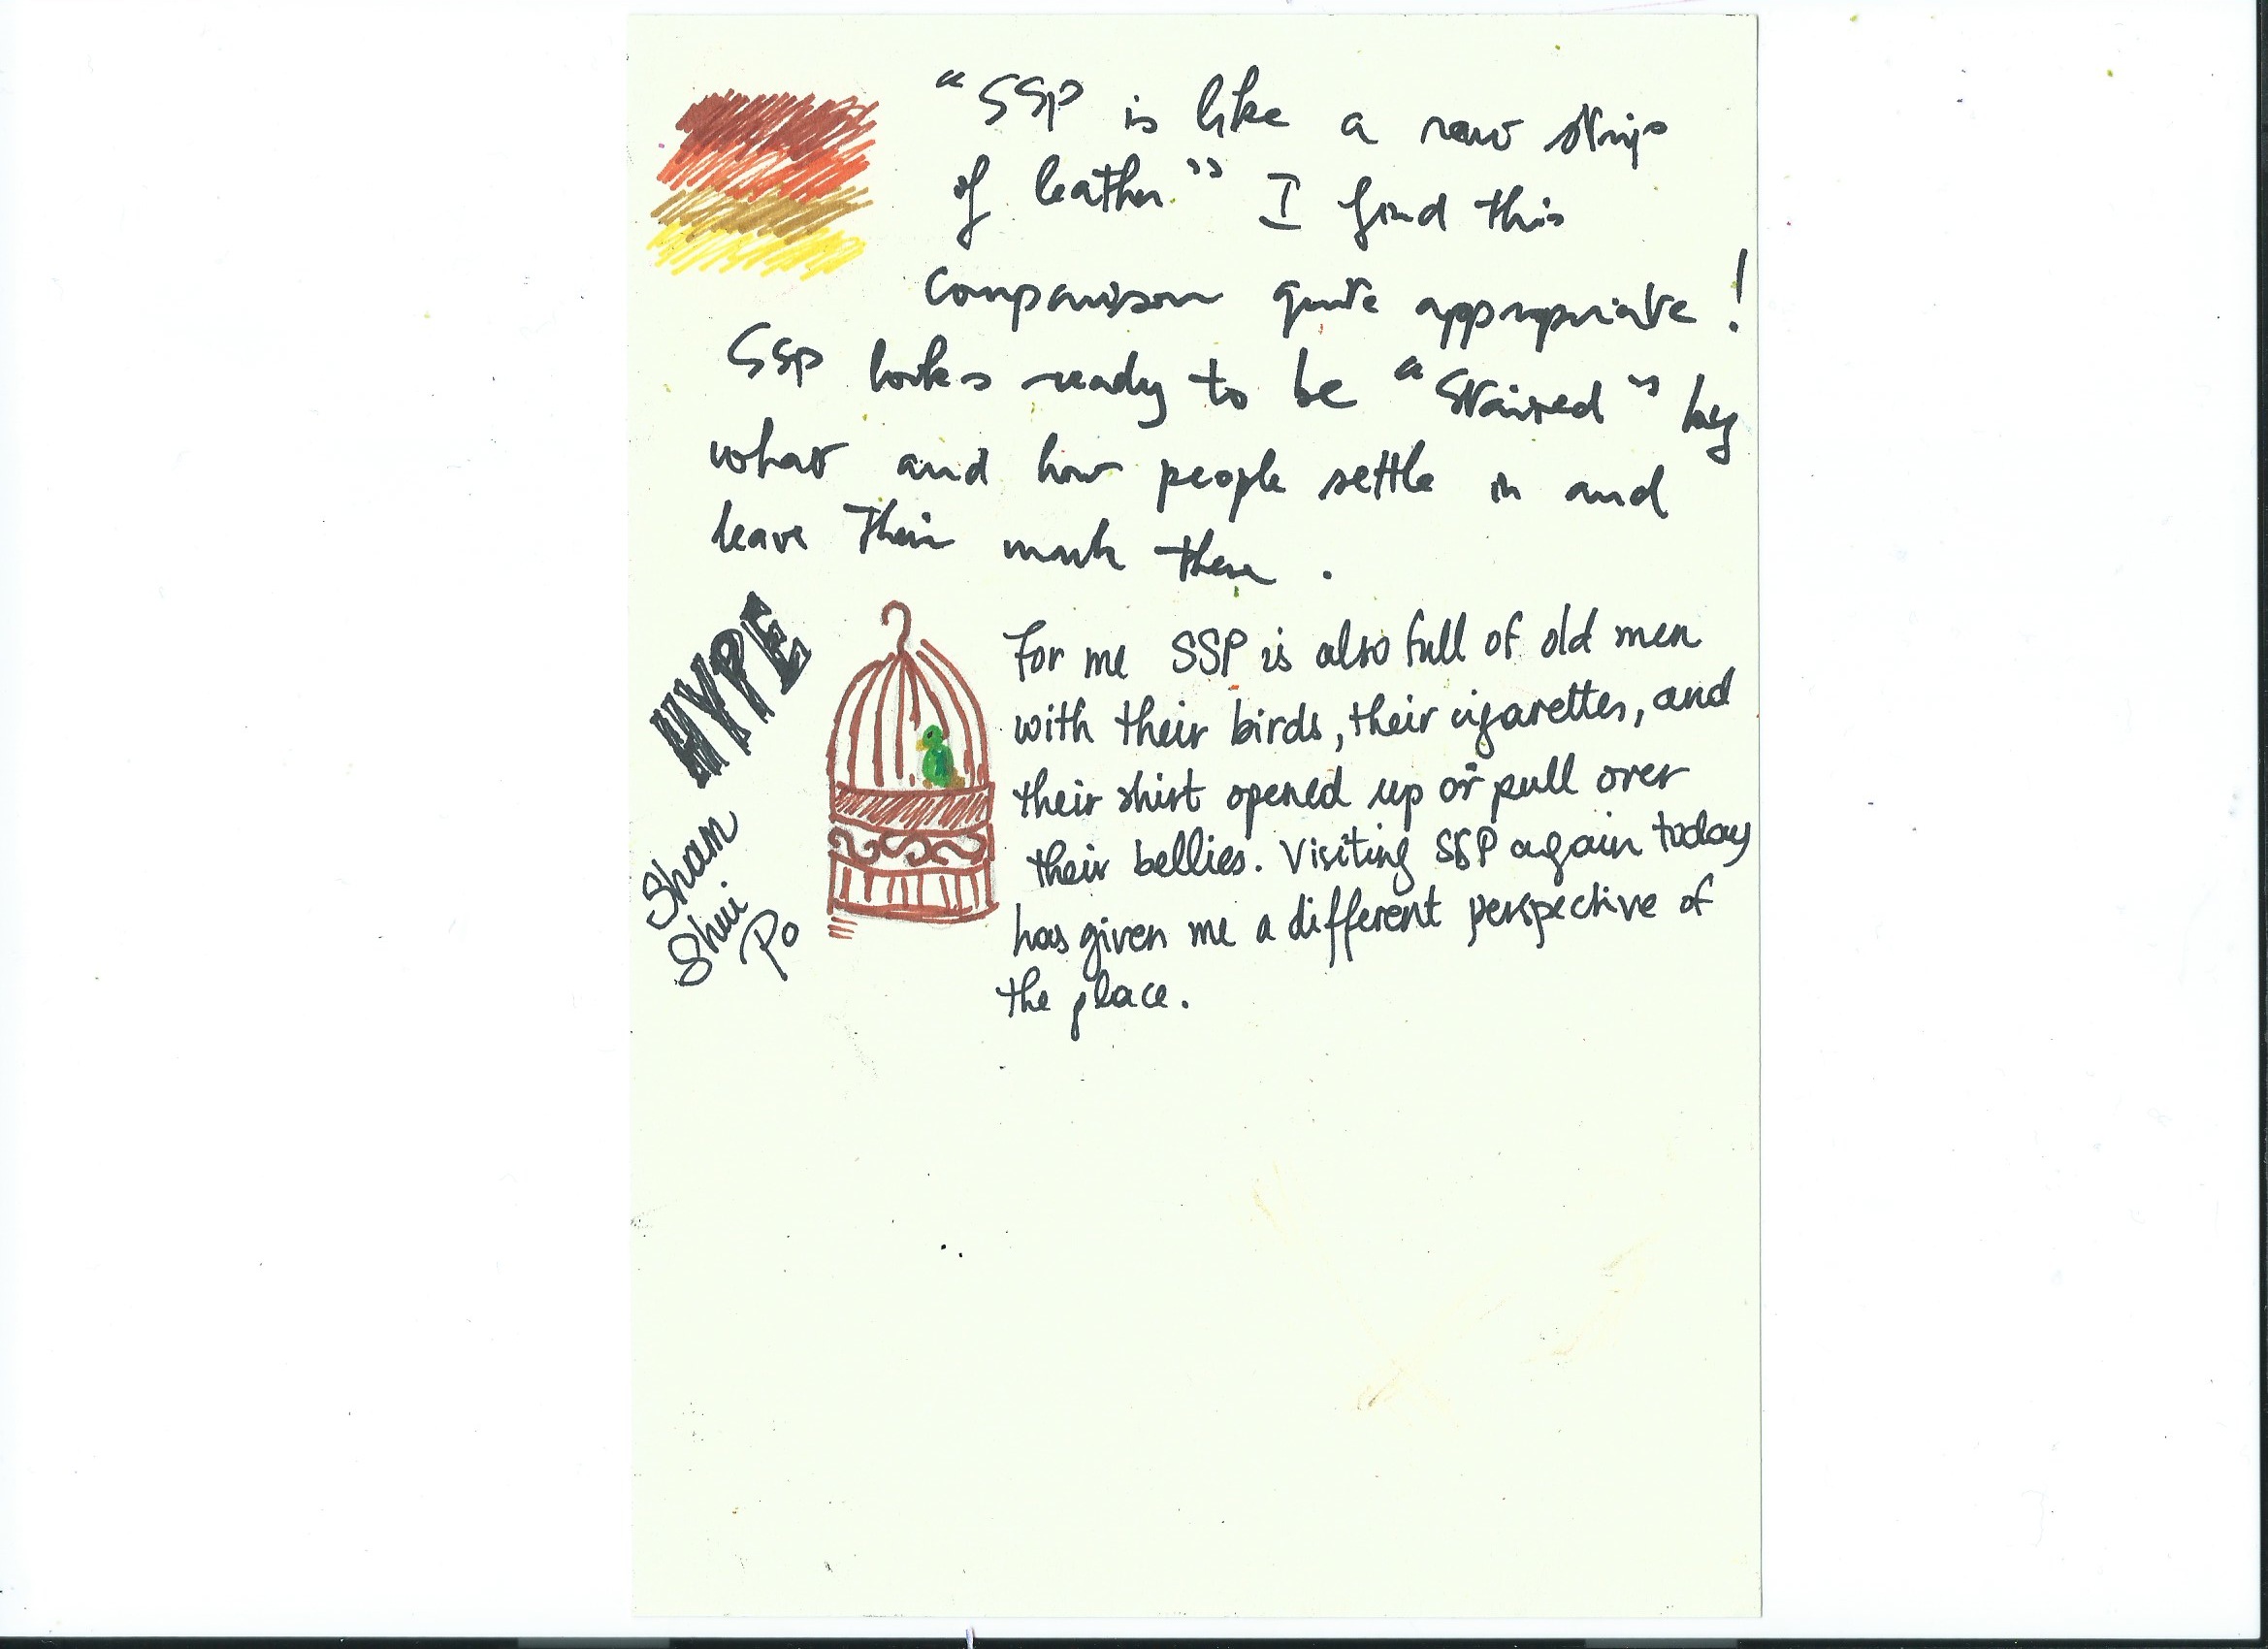 "SSP is like a raw strip
of leather" I find this
comparison quite appropriate!
SSP looks ready to be "Stained" by
what and how people settle in and
leave their mark there.
HYPE
Sham
Shui
Po
For me SSP is also full of old men
with their birds, their cigarettes, and
their shirt opened up or pull over
their bellies. Visiting SSP again today
has given me a different perspective of
the place.